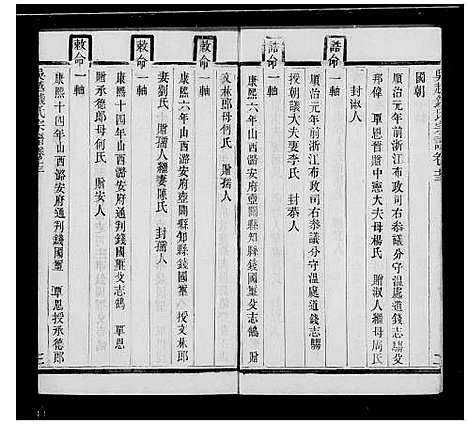 吳越錢氏宗譜卷
國朝
順治元年前浙江布政司右參議分守溫處道錢志騶
邦偉 覃恩晉贈中憲大夫母楊氏 贈淑人繼母周氏
封淑人
誥命一軸
順治元年前浙江布政司右參議分守溫處道錢志騶
授朝議大夫妻李氏 封恭人
誥命一軸
康熙六年山西潞安府壺關縣知縣錢國璽父志鵠 贈
文林郎母何氏 贈孺人
敕命一軸
康熙六年山西潞安府壺關縣知縣錢國璽 授文林郎
妻劉氏 贈孺人繼妻陳氏 封孺人
敕命一軸
康熙十四年山西潞安府通判錢國璽父志鵠 覃恩
贈承德郎母何氏 贈安人
敕命一軸
康熙十四年山西潞安府通判錢國璽 覃恩授承德郎
吳越錢氏宗譜卷
三